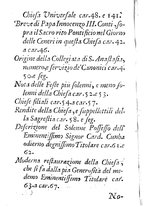 Chiesa Universale car.48. e 141.
Breve di Papa Innocenzo III. Conti, so-
pra il Sacro rito Pontificio nel Giorno
delle Ceneri in questa Chiesa car.42.
a car.46.
Origine della Collegiata di S. Anastasia,
numero e servizio de' Canonici car.4
50. e seg.
Nota delle Feste piu solenni, e meno
solenni di detta Chiesa
Chiese filiali car.54. a car.57.
Rendite della Chiesa, e suppellettili del-
la Sagrestia car.58. e seg.
Descrizione del Solenne Possesso dell'
Eminentissimo Signor Card. Cunha
odierno degnissimo Titolare car.62.
e
Moderna restaurazione della Chiesa,
che si fà dalla pia Generosità del me-
demo Eminentissimo Titolare car.
63. a car.67.
No-